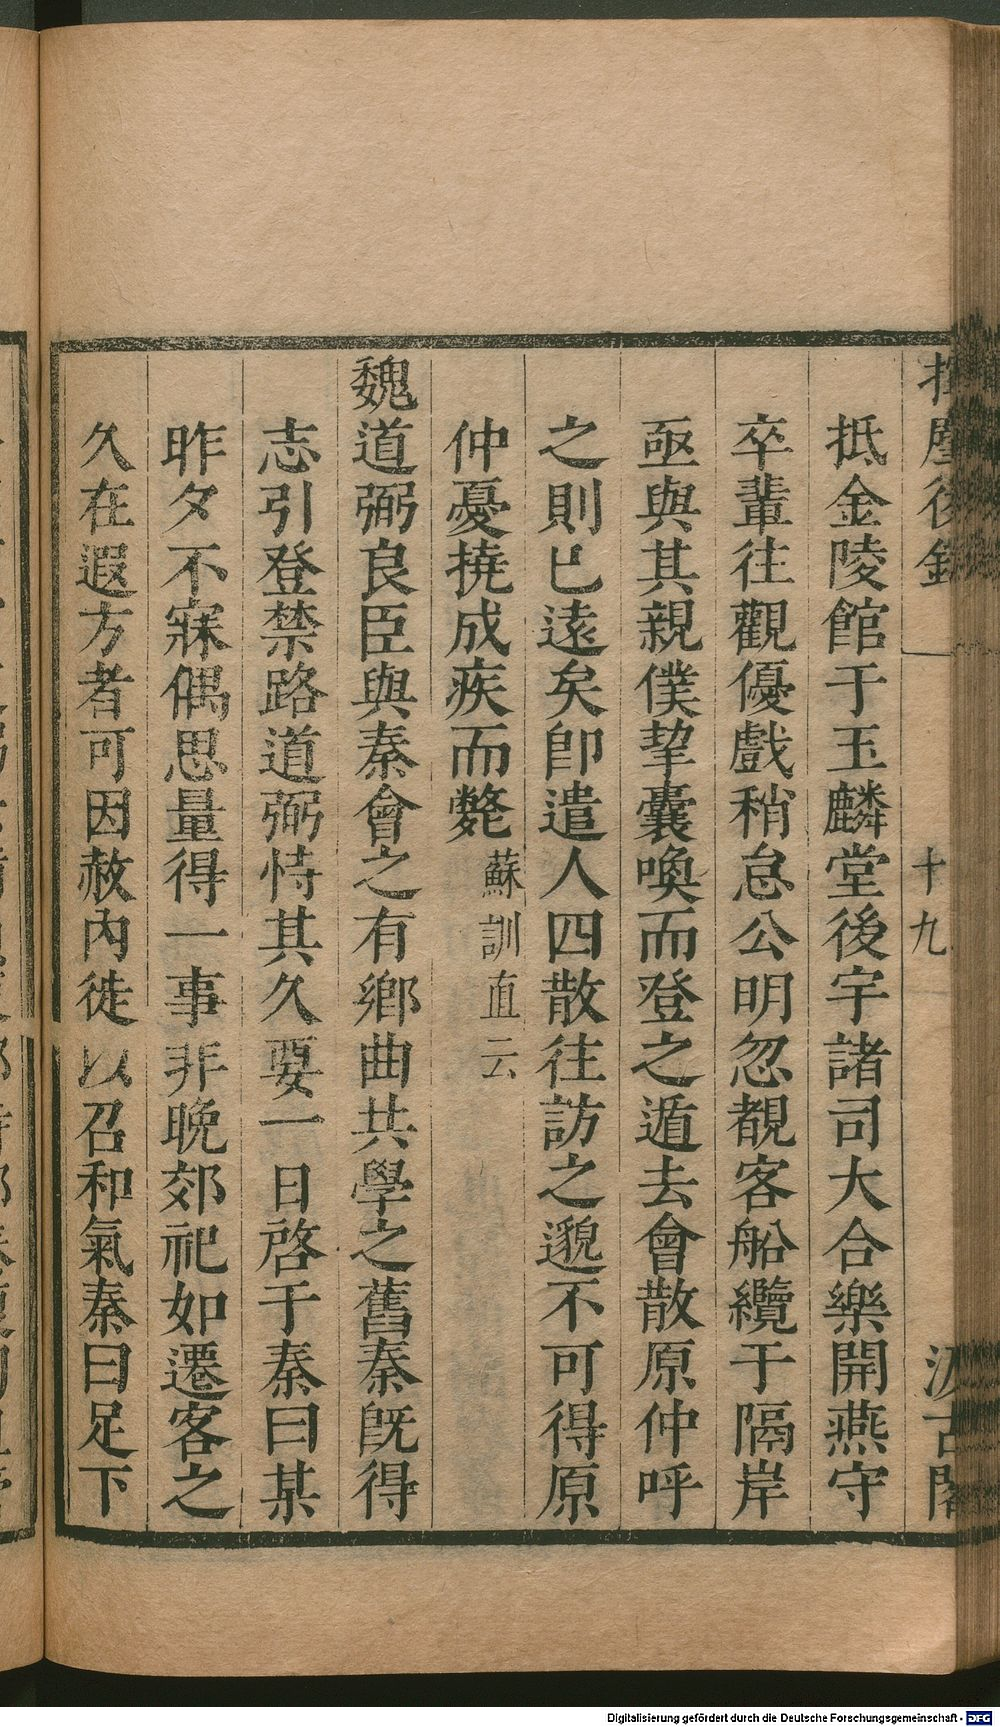 後
十九
抵金陵館于玉麟堂後宇諸司大合樂開燕守
卒輩往觀優戲稍怠公明忽覩客船纜于隔岸
亟與其親僕挈囊喚而登之遁去會散原仲呼
之則巳遠矣卽遣人四散往訪之邈不可得原
仲憂撓成疾而斃蘇訓直云
魏道弼良臣與秦會之有鄉曲共學之舊秦旣得
志引登禁路道弼恃其久要一日啓于秦曰某
昨夕不寐偶思量得一事非晚郊祀如遷客之
久在遐方者可因赦內徙以召和氣秦曰足下
Digitalisierung gefördert durch die Deutsche Forschungsgemeinschaft - DFG